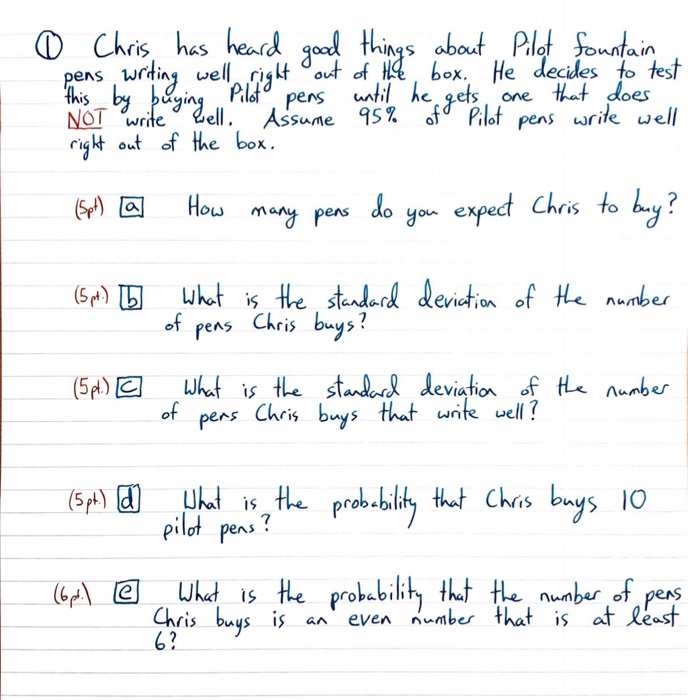 ① Chris has heard good things about Pilot fountain
pens writing well right out of the box. He decides to test
this by buying Pilot pens until he gets one that does
NOT write well. Assume 95% of Pilot pens write well
right out of the box.
(5pt) a How many pens do you expect Chris to buy?
(5pt.) b What is the standard deviation of the number
of pens Chris buys?
(5pt.) c What is the standard deviation of the number
of pens Chris buys that write well?
(5pt.) d What is the probability that Chris buys 10
pilot pens?
(6pt.) e What is the probability that the number of pens
Chris buys is an even number that is at least
6?